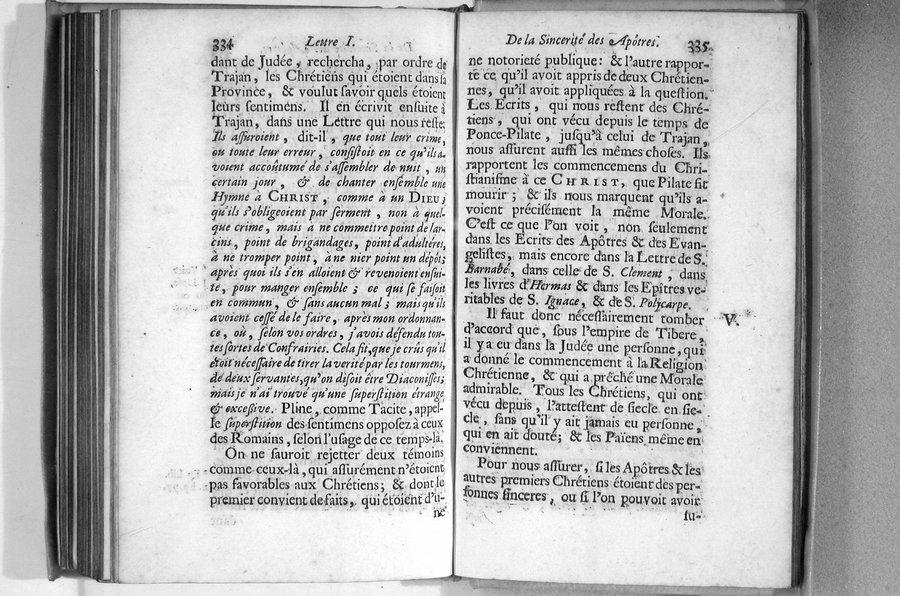 334 Lettre I.
dant de Judée, rechercha, par ordre de
Trajan, les Chrétiens qui étoient dans sa
Province, & voulut savoir quels étoient
leurs sentimens. Il en écrivit ensuite à
Trajan, dans une Lettre qui nous reste:
Ils assuroient, dit-il, que tout leur crime,
ou toute leur erreur, consistoit en ce qu'ils a-
voient accoûtumé de s'assembler de nuit, un
certain jour, & de chanter ensemble une
Hymne à CHRIST, comme à un DIEU;
qu'ils s'obligeoient par serment, non à quel-
que crime, mais à ne commettre point de lar-
cins, point de brigandages, point d'adulteres,
à ne tromper point, à ne nier point un dépôt;
après quoi ils s'en alloient & revenoient ensui-
te, pour manger ensemble; ce qui se faisoit
en commun, & sans aucun mal; mais qu'ils
avoient cessé de le faire, après mon ordonnan-
ce, où, selon vos ordres, j'avois défendu tou-
tes sortes de Confrairies. Cela fit, que je crûs qu'il
étoit nécessaire de tirer la verité par les tourmens,
de deux servantes, qu'on disoit être Diaconisses;
mais je n'ai trouvé qu'une superstition étrange
& excessive. Pline, comme Tacite, appel-
le superstition des sentimens opposez à ceux
des Romains, selon l'usage de ce temps-là.
On ne sauroit rejetter deux témoins
comme ceux-là, qui assurément n'étoient
pas favorables aux Chrétiens; & dont le
premier convient de faits, qui étoient d'u-
ne
De la Sincerité des Apôtres. 335
ne notorieté publique: & l'autre rappor-
te ce qu'il avoit appris de deux Chrétien-
nes, qu'il avoit appliquées à la question.
Les Ecrits, qui nous restent des Chré-
tiens, qui ont vécu depuis le temps de
Ponce-Pilate, jusqu'à celui de Trajan,
nous assurent aussi les mêmes choses. Ils
rapportent les commencemens du Chri-
stianisme à ce CHRIST, que Pilate fit
mourir; & ils nous marquent qu'ils a-
voient précisément la même Morale.
C'est ce que l'on voit, non seulement
dans les Ecrits des Apôtres & des Evan-
gelistes, mais encore dans la Lettre de S.
Barnabé, dans celle de S. Clément, dans
les livres d'Hermas & dans les Epîtres ve-
ritables de S. Ignace, & de S. Polycarpe.
Il faut donc nécessairement tomber V.
d'accord que, sous l'empire de Tibere,
il y a eu dans la Judée une personne, qui
a donné le commencement à la Religion
Chrétienne, & qui a prêché une Morale
admirable. Tous les Chrétiens, qui ont
vécu depuis, l'attestent de siecle en sie-
cle, sans qu'il y ait jamais eu personne,
qui en ait douté; & les Païens même en
conviennent.
Pour nous assurer, si les Apôtres & les
autres premiers Chrétiens étoient des per-
sonnes sinceres, ou si l'on pouvoit avoir
su-